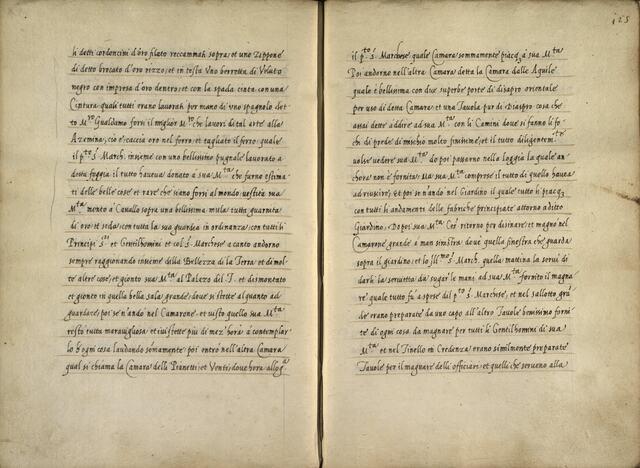 li detti cordoncini d'oro filato reccammati sopra, et uno Zippone
di detto brocato d'oro rizzo; et in testa Uno berretta di Veluto
negro con impresa d'oro dentro; et con la spada cinta, con una
Cintura, quali tutti erano lavorati per mano di uno spagnolo det-
to Mro Gualdamo forsi il miglior Mro che lavori di tal arte alla
Azemina, ciò è caccia oro nel ferro, et tagliato il ferro, quale
il pto Sr March. insieme con uno bellissimo pugnale lavorato a
dossa foggia, il tutto haueua donato a sua Mta che furno estima
ti delle belle cose et rare che siano forsi al mondo, uestita sua
Mta montò a Cavallo sopra una bellissima mula, tutta guarnita
di oro, et seda, con tutta la sua guardia in ordinanza, con tutti li
Principi Sri et Gentilhomini et col S. Marchese a canto andorno
sempre raggionando insieme della Bellezza di la Terra, et di mol-
te altre cose; et gionto sua Mta al Palazo del .T. et dismontato
et gionto in quella bella sala grande, doue si stette al quanto ad
guardare, poi se n'andò nel Camarone, et uisto quello sua Mta
restò tutta maravigliosa, et iui stette più di mez' hora à contemplar
lo, ogni cosa laudando sommamente; poi entrò nell'altra Camara
qual si chiama la Camara delli Pianetti, et Venti, doue hora allogia
125
il pto S. Marchese, quale Camara sommamente piacq à sua Mta
Poi andorno nell'altra Camara detta la Camara dalle Aquile
quale è bellissima, con due superbe porte di diaspro orientale
per uso di detta Camara, et una Tavola pur di Diaspro cosa che
assai dette a dire ad sua Mta con li Camini doue si fanno li fo-
chi di prede, di mischio molto finissime, et il tutto diligentemte
uolse vedere sua Mta do poi passarno nella loggia, la quale an-
chora non è fornita, Ma sua Mta comprese il tutto di quello haueua
ad riuscire, et poi se n'andò nel Giardino il quale tutto li piacq
con tutti li andamenti delle fabriche principiate attorno a ditto
Giardino, Do poi sua Mta Cesa ritorno per disnare, et magnò nel
Camarone grande à man sinistra doue quella finestra che guarda
sopra il giardino; et lo Illmo S. March. quella mattina la servì di
darli la servietta da sugar le mani ad sua Mta fornito il magna-
re, quale tutto fù a spese del pto S. Marchese, et nel sallotto grã
de erano preparate da uno capo all'altro Tavole benissimo forni-
te di ogni cosa da magnare per tutti li Gentilhomini di sua
Mta et nel Tinello in Credenza erano similmente preparate
Tavole per il magnare delli officiari, et quelli che serueno alla